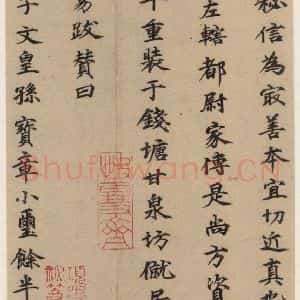 秘信為㝡善本宜切近真
左轄都尉家傳是尚方資
重装于錢塘甘泉坊僦居
易跋贊曰
文皇孫寶章小璽餘半
Shufawang.CN